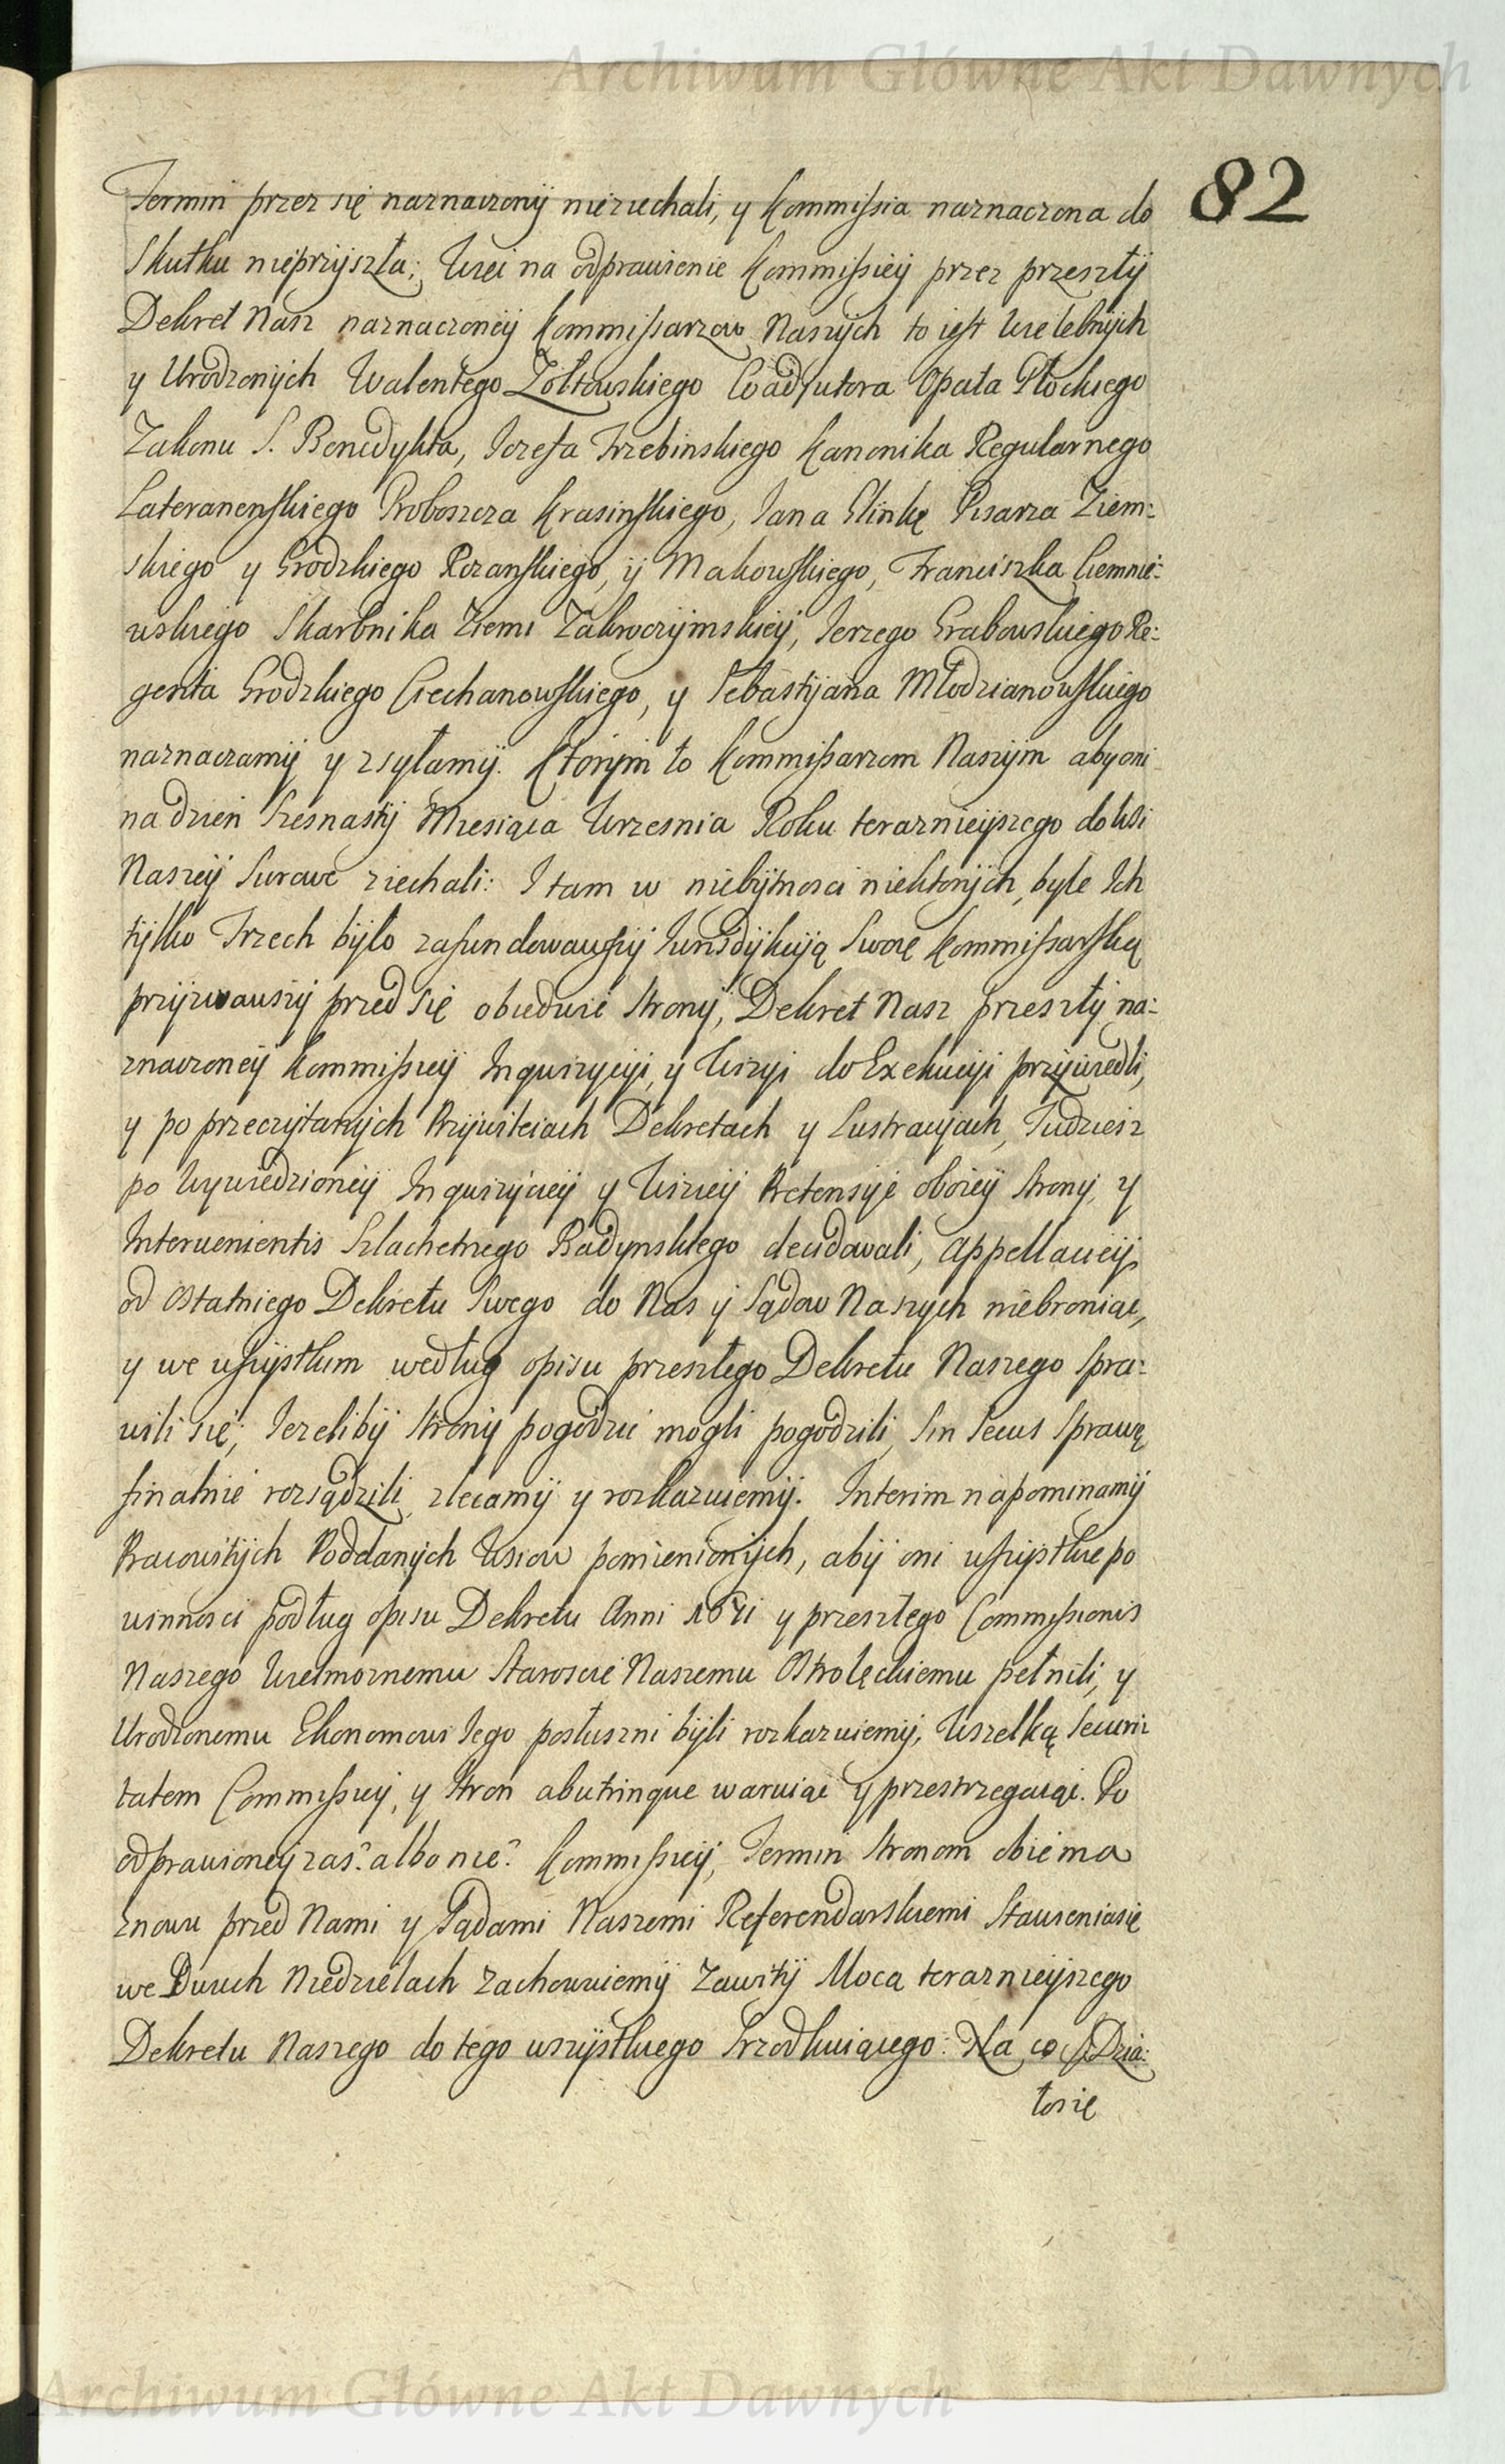 Archiwum Główne Akt Dawnych
82
Termin przez się naznaczony nieziechali, y Kommissia naznaczona do
Skutku nieprzyszła; Więc na odprawienie Kommissiey przez przeszły
Dekret Nasz naznaczoney Kommissarzow Naszych to iest Wielebnych
y Urodzonych Walentego Zołtowskiego Coadjutora Opata Płockiego
Zakonu S. Benedykta, Iozefa Trzebinskiego Kanonika Regularnego
Lateranenskiego Proboszcza Krasinskiego, Iana Glinkę Pisarza Ziem:
skiego y Grodzkiego Rozanskiego, y Makowskiego, Franciszka Ciemnie:
wskiego Skarbnika Ziemi Zakroczymskiey, Ierzego Grabowskiego Re:
genta Grodzkiego Ciechanowskiego, y Sebastyana Młodzianowskiego
naznaczamy y zsyłamy. Ktorym to Kommissarzom Naszym aby oni
na dzien Szesnasty Miesiąca Wrzesnia Roku teraznieyszego do Wsi
Naszey Surowe ziechali: I tam w niebytnosci niektorych, byle Ich
tylko Trzech było zafundowawszy Iurisdykcyą Swoię Kommissarską
przyzwawszy przed się obiedwie Strony, Dekret Nasz przeszły na:
znaczoney Kommissiey Inquizycyi, y Wizyi do Exekucyi przywiedli,
y po przeczytanych Przywileiach Dekretach y Lustracyach, Tudziesz
po Wywiedzioney Inquizycyey y Wiziey Pretensye oboiey Strony, y
Intervenientis Szlachetnego Radynskiego decidowali, Appellacyey
od Ostatniego Dekretu Swego do Nas y Sądow Naszych niebroniąc,
y we wszystkim według opisu przeszłego Dekretu Naszego Spra:
wili się; Iezeliby Strony pogodzić mogli pogodzili, Sin Secus Sprawę
finalnie rozsądzili, zlecamy y rozkazuiemy. Interim napominamy
Pracowitych Poddanych Wsiow pomienionych, aby oni wszystkie po
winnosci podług opisu Dekretu Anni 1671 y przeszłego Commissionis
Naszego Wielmoznemu Staroscie Naszemu Ostrolęckiemu pełnili, y
Urodzonemu Ekonomowi Iego posłuszni byli rozkazuiemy, Wszelką Securi:
tatem Commissiey, y Stron abutrinque waruiąc y przestrzegaiąc. Po
odprawioney zas? albo nie? Kommissiey, Termin Stronom obiema
Znowu przed Nami y Sądami Naszemi Referendarskiemi Stawieniasię
we Dwuch Niedzielach Zachowuiemy Zawity Mocą teraznieyszego
Dekretu Naszego do tego wszystkiego Srzodkuiącego: Na co S. Dzia:
łosię
Archiwum Główne Akt Dawnych